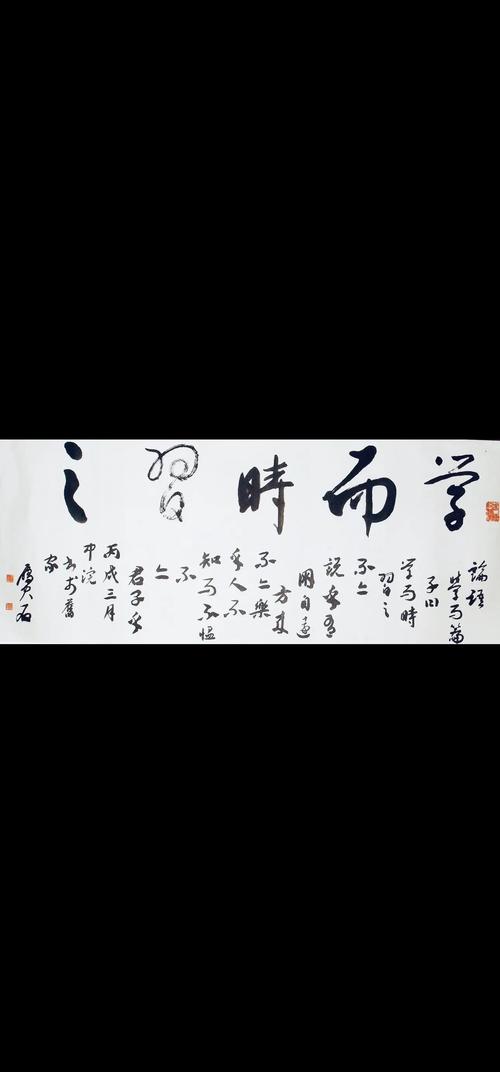 学而時習之
論語
學而篇
子曰
学而時
習之
不亦
説乎有
朋自遠
方来
不亦樂
乎人不
知而不愠
不
亦
君子乎
丙戌三月
中浣
家